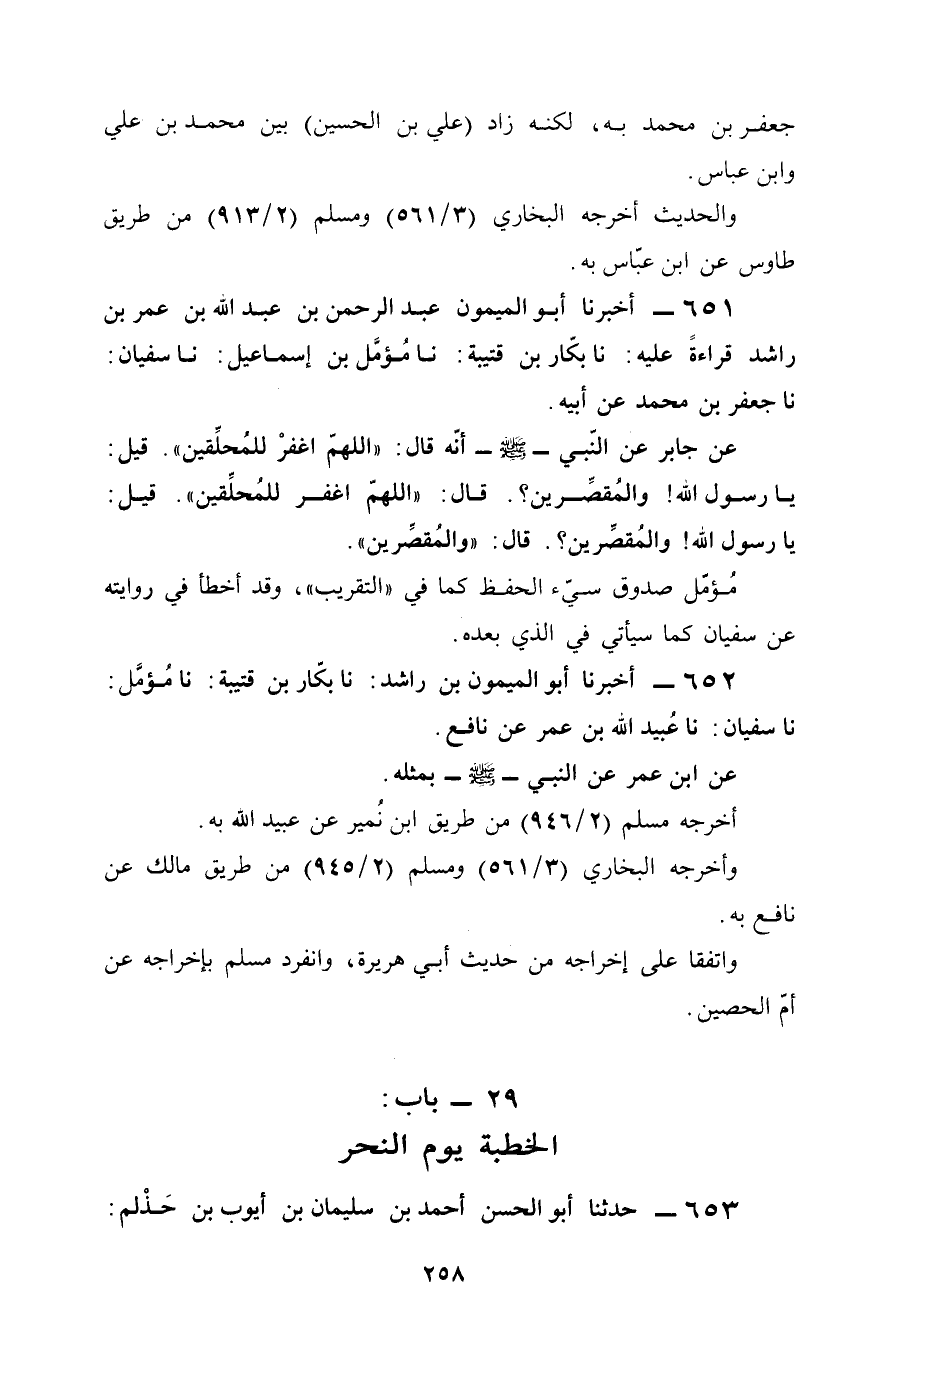 جعفر بن محمد به، لكنه زاد (علي بن الحسين) بين محمد بن علي
وابن عباس.
والحديث أخرجه البخاري (٥٦١/٣) ومسلم (٩١٣/٢) من طريق
طاوس عن ابن عبّاس به.
٦٥١ ــ أخبرنا أبو الميمون عبد الرحمن بن عبد الله بن عمر بن
راشد قراءةً عليه: نا بكّار بن قتيبة: نا مُؤمَّل بن إسماعيل: نا سفيان:
نا جعفر بن محمد عن أبيه.
عن جابر عن النّبي ــ ﷺ ــ أنّه قال: «اللهمّ اغفرْ للمُحلِّقين». قيل:
يا رسول الله! والمُقصِّرين؟. قال: «اللهمّ اغفر للمُحلِّقين». قيل:
يا رسول الله! والمُقصِّرين؟. قال: «والمُقصِّرين».
مُؤمّل صدوق سيّء الحفظ كما في «التقريب»، وقد أخطأ في روايته
عن سفيان كما سيأتي في الذي بعده.
٦٥٢ ــ أخبرنا أبو الميمون بن راشد: نا بكّار بن قتيبة: نا مُؤمَّل:
نا سفيان: نا عُبيد الله بن عمر عن نافع.
عن ابن عمر عن النبي ــ ﷺ ــ بمثله.
أخرجه مسلم (٩٤٦/٢) من طريق ابن نُمير عن عبيد الله به.
وأخرجه البخاري (٥٦١/٣) ومسلم (٩٤٥/٢) من طريق مالك عن
نافع به.
واتفقا على إخراجه من حديث أبي هريرة، وانفرد مسلم بإخراجه عن
أمّ الحصين.
٢٩ ــ باب:
الخطبة يوم النحر
٦٥٣ ــ حدثنا أبو الحسن أحمد بن سليمان بن أيوب بن حَذْلم:
٢٥٨